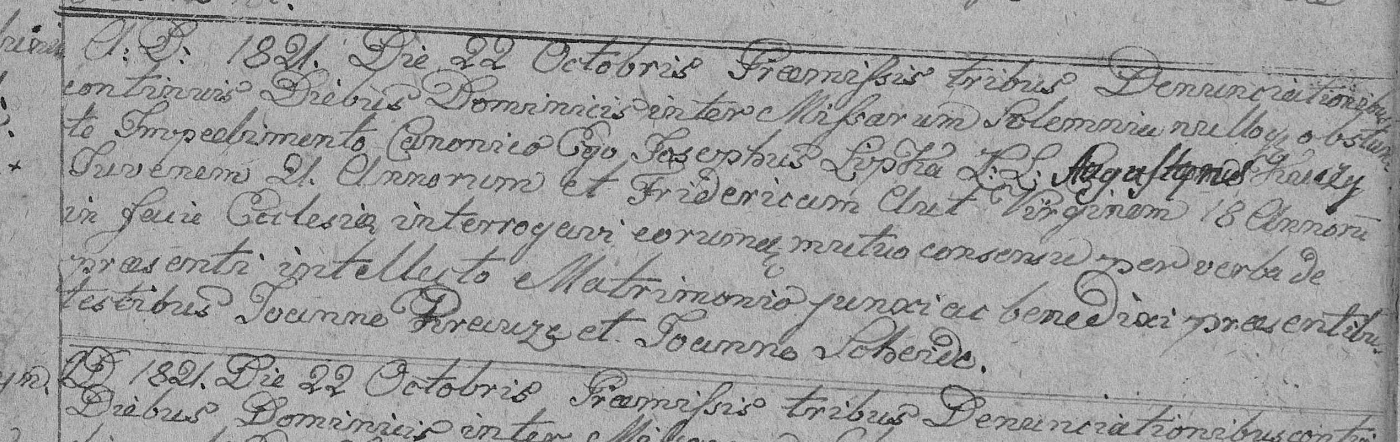 A: D: 1821. Die 22 Octobris Præmissis tribus Denunciationibus
continuis Diebus Dominicis inter Missarum Solemnia nulloq obstan
te Impedimento Canonico Ego Josephus Lyska L: L: Augustynus
Juvenem 21. Annorum et Fridericam Aut Virginem 18 Annoru
in facie Ecclesiæ interrogavi eorumq mutuo consensu per verba de
præsenti intellecto Matrimonio junxi ac benedixi præsentibus
testibus Joanne Krauze et Joanne Scheide.
AD 1821. Die 22 Octobris Præmissis tribus Denunciationibus conti
Diebus Dominicis inter